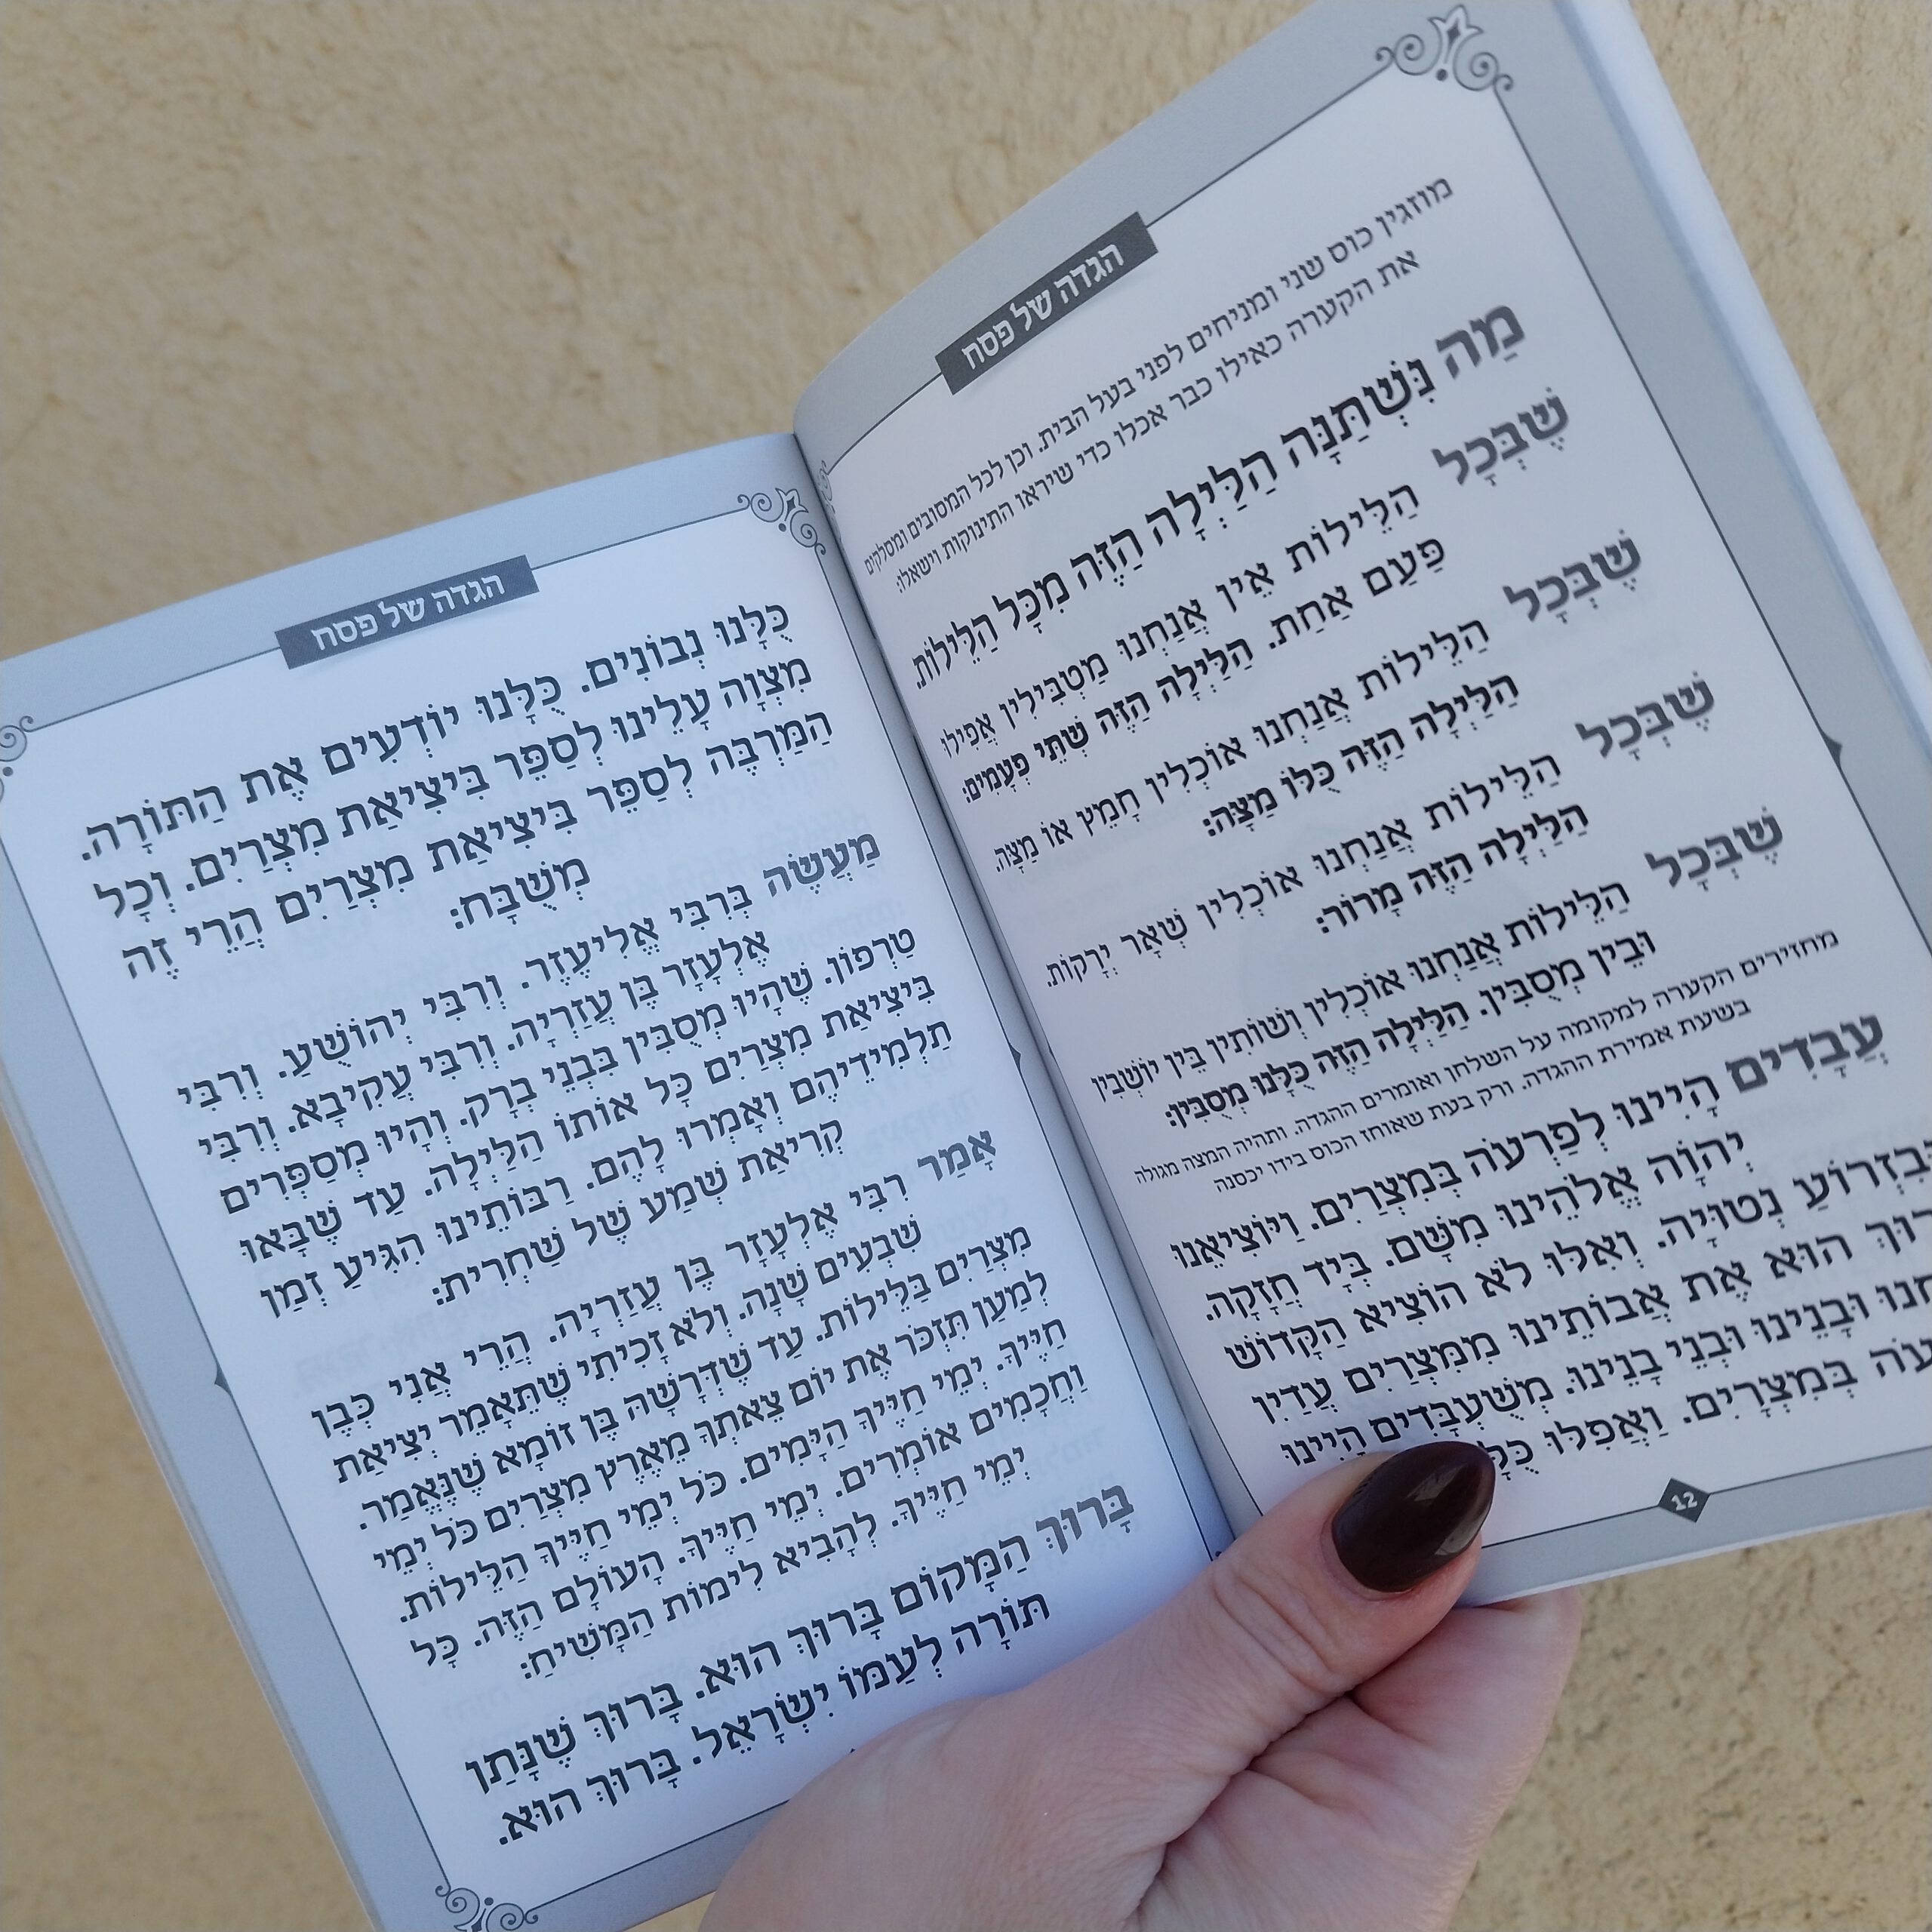 הגדה של פסח
מוזגין כוס שני ומניחים לפני בעל הבית. וכן לכל המסובים ומסלקים
את הקערה כאילו כבר אכלו כדי שיראו התינוקות וישאלו:
מַה נִּשְׁתַּנָּה הַלַּיְלָה הַזֶּה מִכָּל הַלֵּילוֹת.
שֶׁבְּכָל הַלֵּילוֹת אֵין אֲנַחְנוּ מַטְבִּילִין אֲפִילוּ
פַּעַם אַחַת. הַלַּיְלָה הַזֶּה שְׁתֵּי פְעָמִים:
שֶׁבְּכָל הַלֵּילוֹת אֲנַחְנוּ אוֹכְלִין חָמֵץ אוֹ מַצָּה.
הַלַּיְלָה הַזֶּה כֻּלּוֹ מַצָּה:
שֶׁבְּכָל הַלֵּילוֹת אֲנַחְנוּ אוֹכְלִין שְׁאָר יְרָקוֹת.
הַלַּיְלָה הַזֶּה מָרוֹר:
שֶׁבְּכָל הַלֵּילוֹת אֲנַחְנוּ אוֹכְלִין וְשׁוֹתִין בֵּין יוֹשְׁבִין
וּבֵין מְסֻבִּין. הַלַּיְלָה הַזֶּה כֻּלָּנוּ מְסֻבִּין:
מחזירים הקערה למקומה על השלחן ואומרים ההגדה. ותהיה המצה מגולה
בשעת אמירת ההגדה. ורק בעת שאוחז הכוס בידו יכסנה
עֲבָדִים הָיִינוּ לְפַרְעֹה בְּמִצְרַיִם. וַיּוֹצִיאֵנוּ
יְהוָֹה אֱלֹהֵינוּ מִשָּׁם. בְּיָד חֲזָקָה.
וּבִזְרוֹעַ נְטוּיָה. וְאִלּוּ לֹא הוֹצִיא הַקָּדוֹשׁ
הוּא אֶת אֲבוֹתֵינוּ מִמִּצְרַיִם עֲדַיִן
וּבָנֵינוּ וּבְנֵי בָנֵינוּ. מְשֻׁעְבָּדִים הָיִינוּ
בְּמִצְרָיִם. וַאֲפִלּוּ
12
הגדה של פסח
כֻּלָּנוּ נְבוֹנִים. כֻּלָּנוּ יוֹדְעִים אֶת הַתּוֹרָה.
מִצְוָה עָלֵינוּ לְסַפֵּר בִּיצִיאַת מִצְרַיִם. וְכָל
הַמַּרְבֶּה לְסַפֵּר בִּיצִיאַת מִצְרַיִם הֲרֵי זֶה
מְשֻׁבָּח:
מַעֲשֶׂה בְּרִבִּי אֱלִיעֶזֶר. וְרִבִּי יְהוֹשֻׁעַ. וְרִבִּי
אֶלְעָזָר בֶּן עֲזַרְיָה. וְרִבִּי עֲקִיבָא. וְרִבִּי
טַרְפוֹן. שֶׁהָיוּ מְסֻבִּין בִּבְנֵי בְרָק. וְהָיוּ מְסַפְּרִים
בִּיצִיאַת מִצְרַיִם כָּל אוֹתוֹ הַלַּיְלָה. עַד שֶׁבָּאוּ
תַלְמִידֵיהֶם וְאָמְרוּ לָהֶם. רַבּוֹתֵינוּ הִגִּיעַ זְמַן
קְרִיאַת שְׁמַע שֶׁל שַׁחְרִית:
אָמַר רִבִּי אֶלְעָזָר בֶּן עֲזַרְיָה. הֲרֵי אֲנִי כְּבֶן
שִׁבְעִים שָׁנָה. וְלֹא זָכִיתִי שֶׁתֵּאָמֵר יְצִיאַת
מִצְרַיִם בַּלֵּילוֹת. עַד שֶׁדְּרָשָׁהּ בֶּן זוֹמָא שֶׁנֶּאֱמַר.
לְמַעַן תִּזְכֹּר אֶת יוֹם צֵאתְךָ מֵאֶרֶץ מִצְרַיִם כֹּל יְמֵי
חַיֶּיךָ. יְמֵי חַיֶּיךָ הַיָּמִים. כֹּל יְמֵי חַיֶּיךָ הַלֵּילוֹת.
וַחֲכָמִים אוֹמְרִים. יְמֵי חַיֶּיךָ. הָעוֹלָם הַזֶּה. כָּל
יְמֵי חַיֶּיךָ. לְהָבִיא לִימוֹת הַמָּשִׁיחַ:
בָּרוּךְ הַמָּקוֹם בָּרוּךְ הוּא. בָּרוּךְ שֶׁנָּתַן
תּוֹרָה לְעַמּוֹ יִשְׂרָאֵל. בָּרוּךְ הוּא.